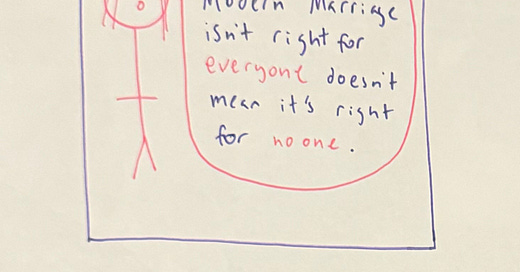 Modern Marriage
isn't right for
everyone doesn't
mean it's right
for no one.